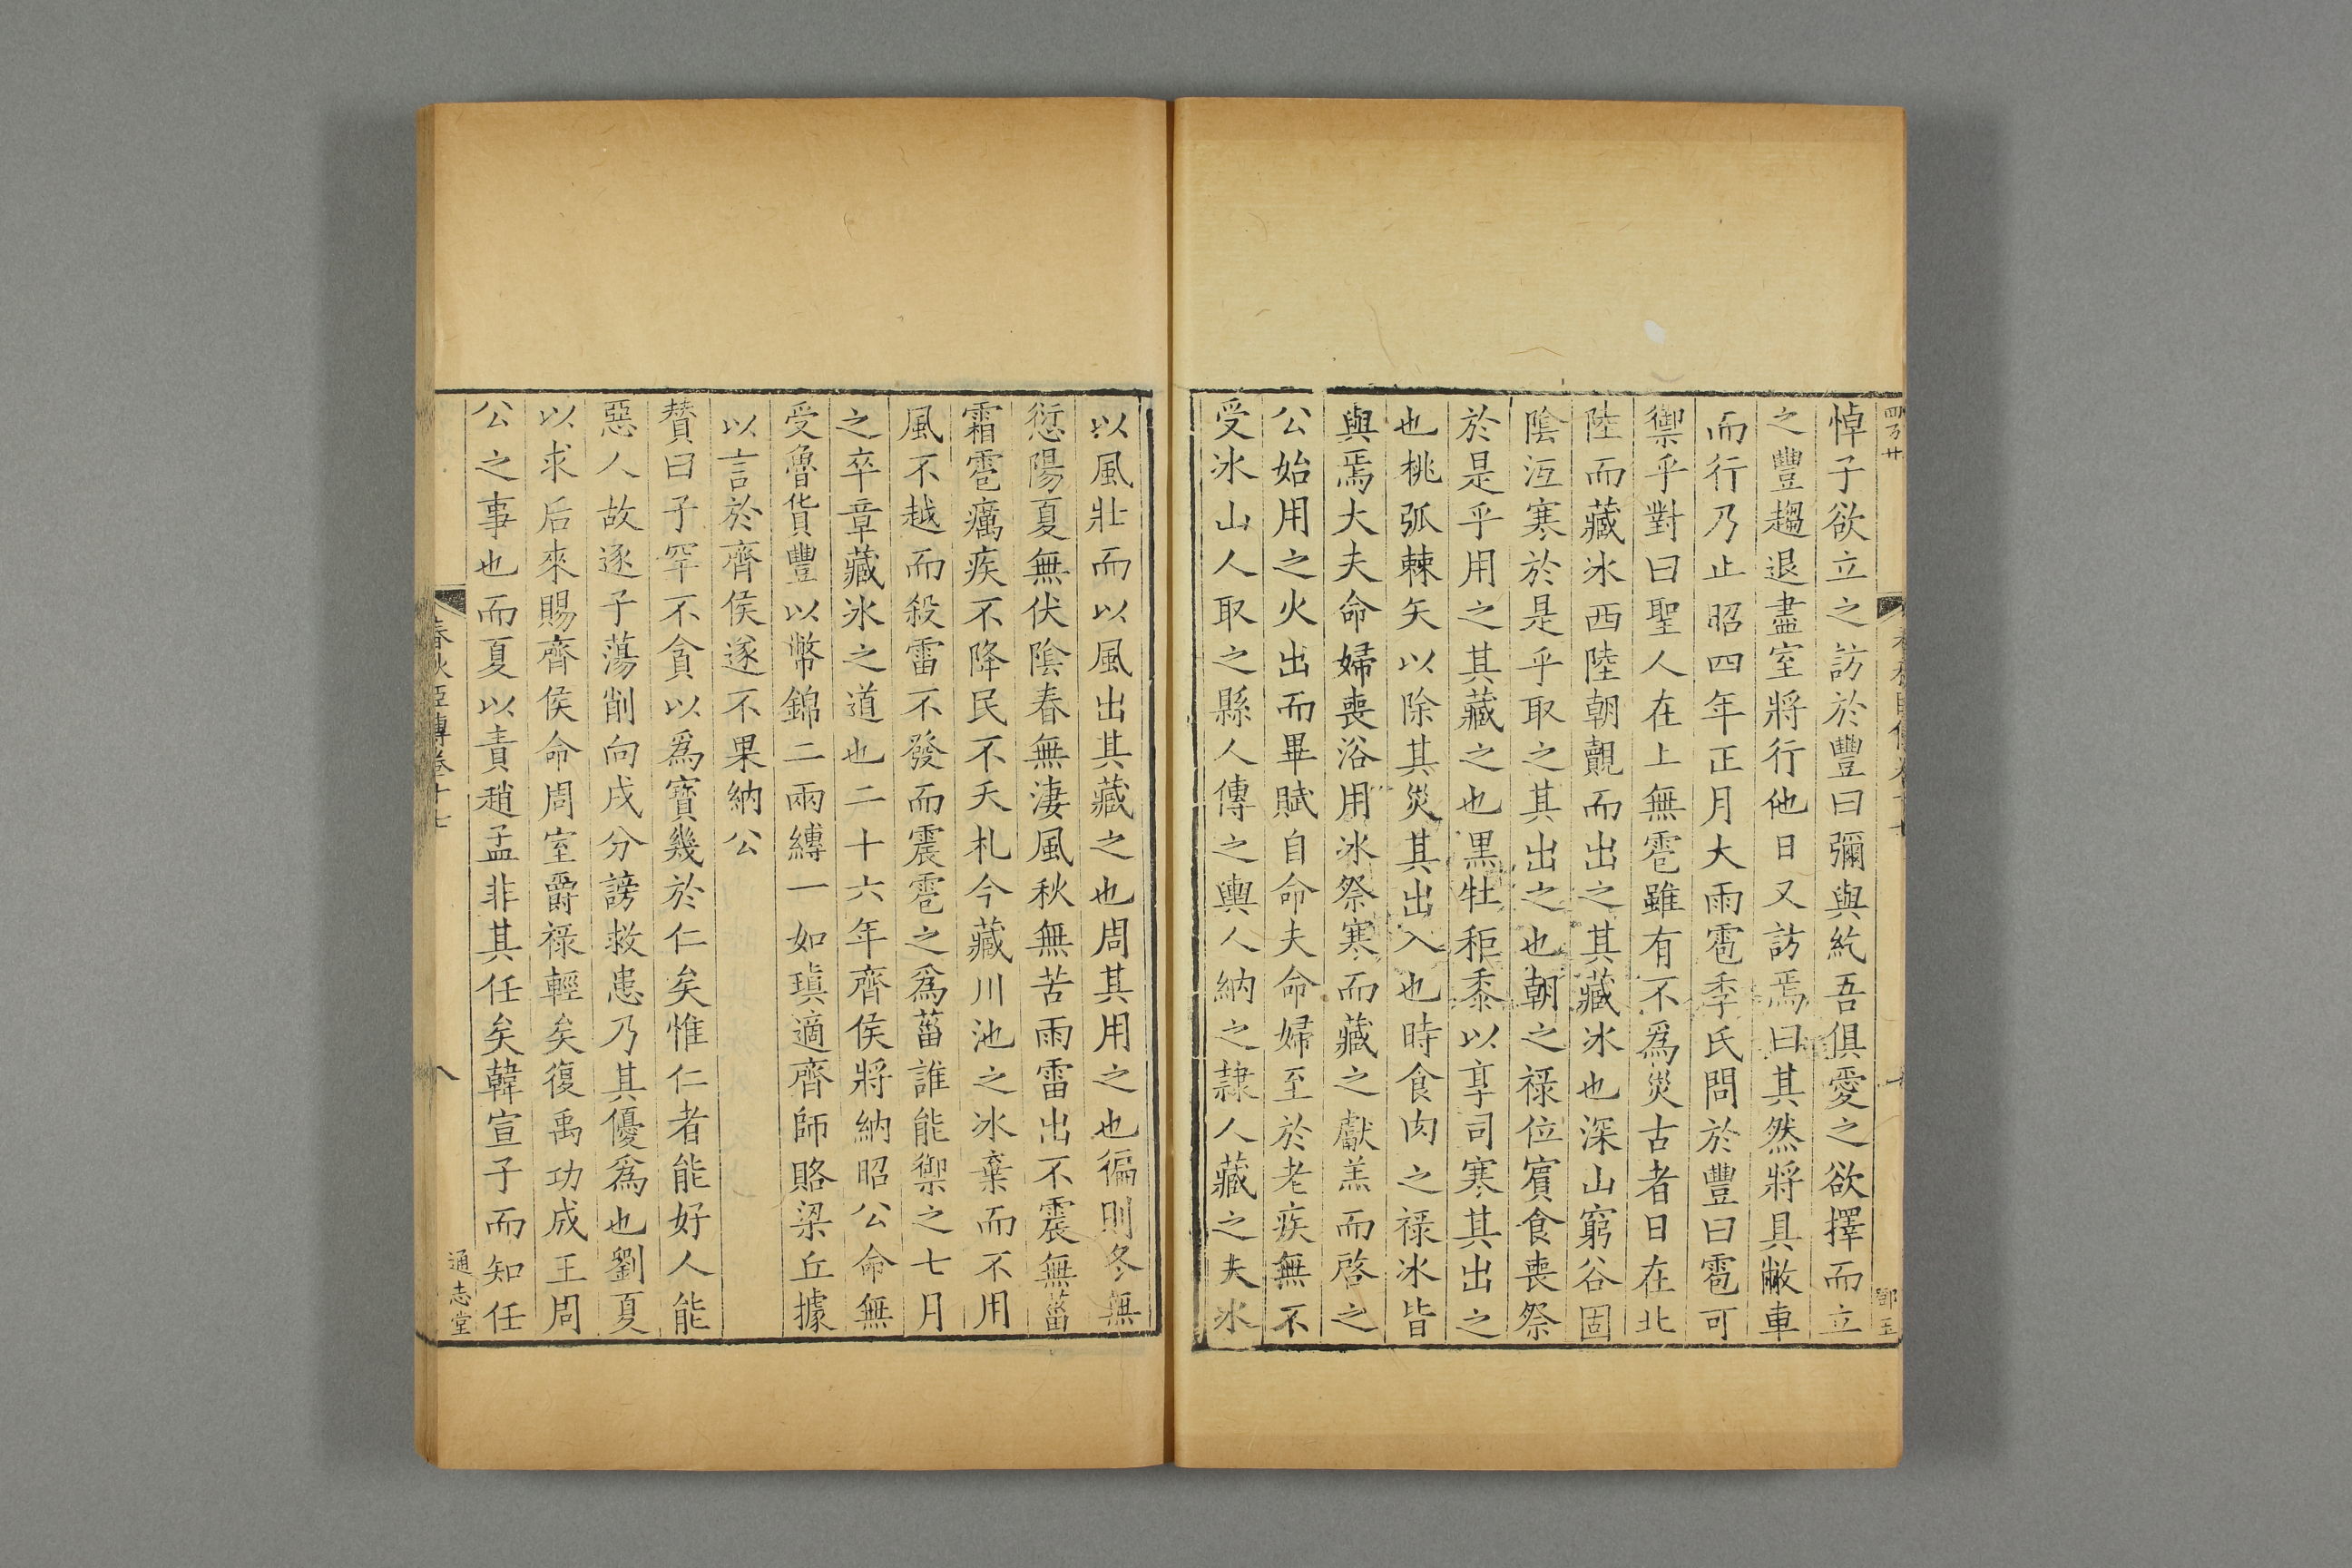 悼子欲立之訪於豐曰彌與紇吾俱愛之欲擇而立
之豐趨退盡室將行他日又訪焉曰其然將具敝車
而行乃止昭四年正月大雨雹季氏問於豐曰雹可
禦乎對曰聖人在上無雹雖有不爲災古者日在北
陸而藏冰西陸朝覿而出之其藏冰也深山窮谷固
陰沍寒於是乎取之其出之也朝之禄位賔食喪祭
於是乎用之其藏之也黒牡秬黍以享司寒其出之
也桃弧棘矢以除其災其出入也時食肉之禄冰皆
與焉大夫命婦喪浴用冰祭寒而藏之獻羔而啓之
公始用之火出而畢賦自命夫命婦至於老疾無不
受冰山人取之縣人傳之輿人納之隷人藏之夫冰
以風壯而以風出其藏之也周其用之也徧則冬無
愆陽夏無伏陰春無淒風秋無苦雨雷出不震無菑
霜雹癘疾不降民不夭札今藏川池之冰棄而不用
風不越而殺雷不發而震雹之爲菑誰能禦之七月
之卒章藏冰之道也二十六年齊侯將納昭公命無
受魯貨豐以幣錦二兩縳一如瑱適齊師賂梁丘據
以言於齊侯遂不果納公
賛曰子罕不貪以爲寳幾於仁矣惟仁者能好人能
惡人故逐子蕩削向戌分謗救患乃其優爲也劉夏
以求后來賜齊侯命周室爵禄輕矣復禹功成王周
公之事也而夏以責趙孟非其任矣韓宣子而知任
春秋臣傳卷十七
八
通志堂